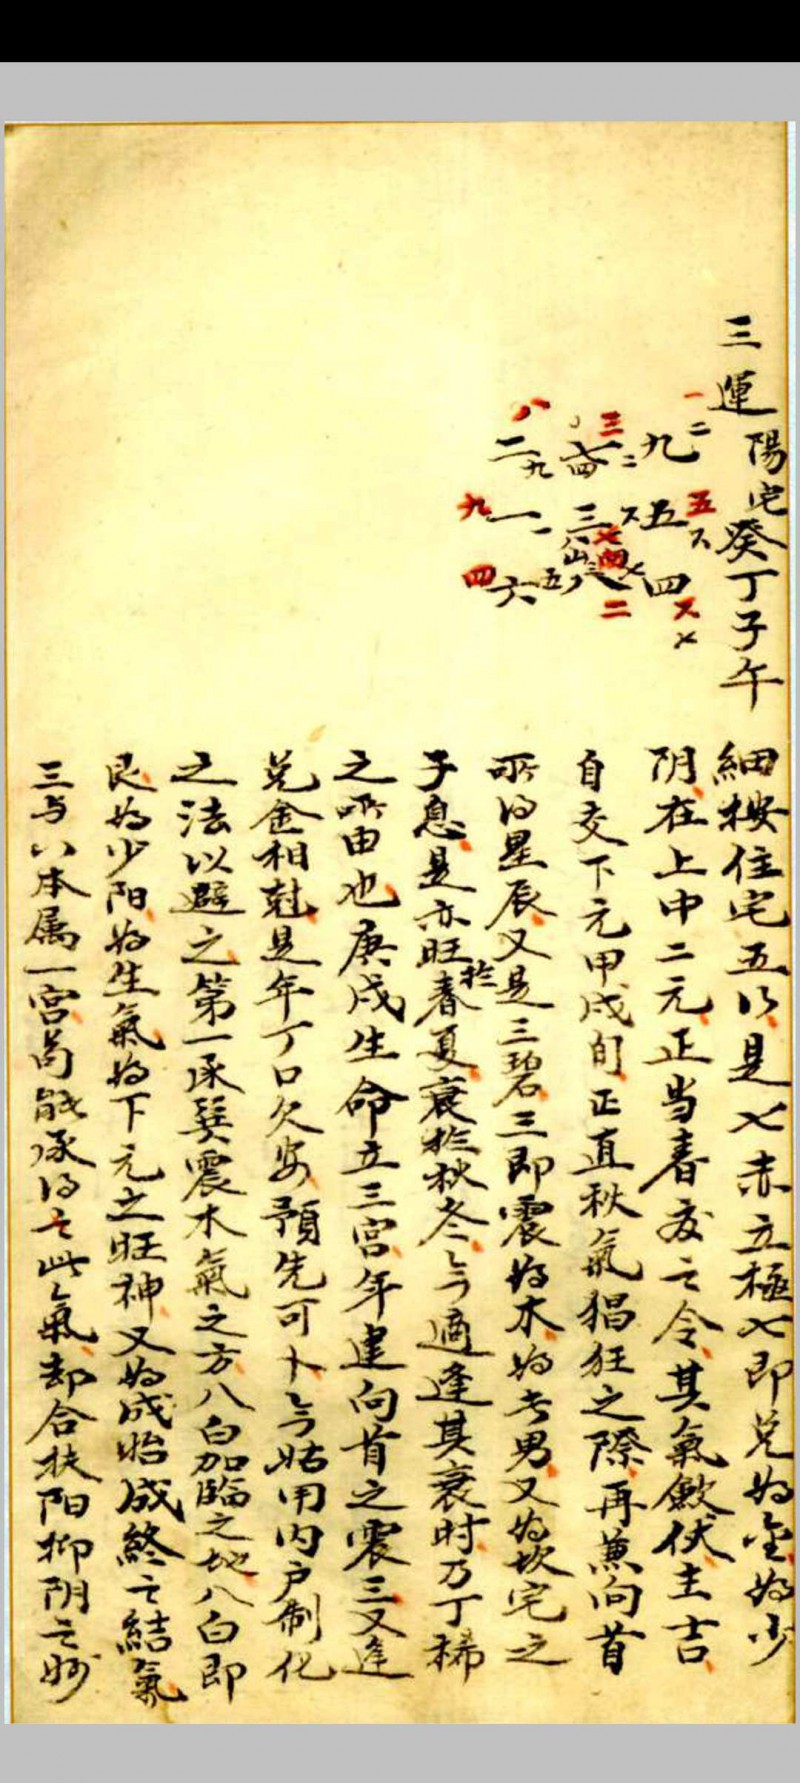 三運陽宅癸丁子午
細按住宅五行是七赤立極七即兌為金為少
阴在上中二元正当春夏之令其氣斂伏主吉
自交下元甲戌旬正直秋氣猖狂之際再兼向首
所得星辰又是三碧三即震為木為長男又為坎宅之
子息是亦旺於春夏衰於秋冬今適逢其衰时乃丁稀
之所由也庚戌生命立三宮年建向首之震三又逢
兌金相尅是年丁口欠安預先可卜今姑用内户制化
之法以避之第一承巽震木氣之方八白加臨之地八白即
艮為少阳為生氣為下元之旺神又為成始成終之結氣
三与八本属一宮苟能承得之此氣却合扶阳抑阴之妙
一 二 九 三 二 八 二 九
五 五 三 一 一 九
四 八 二 六 五 四